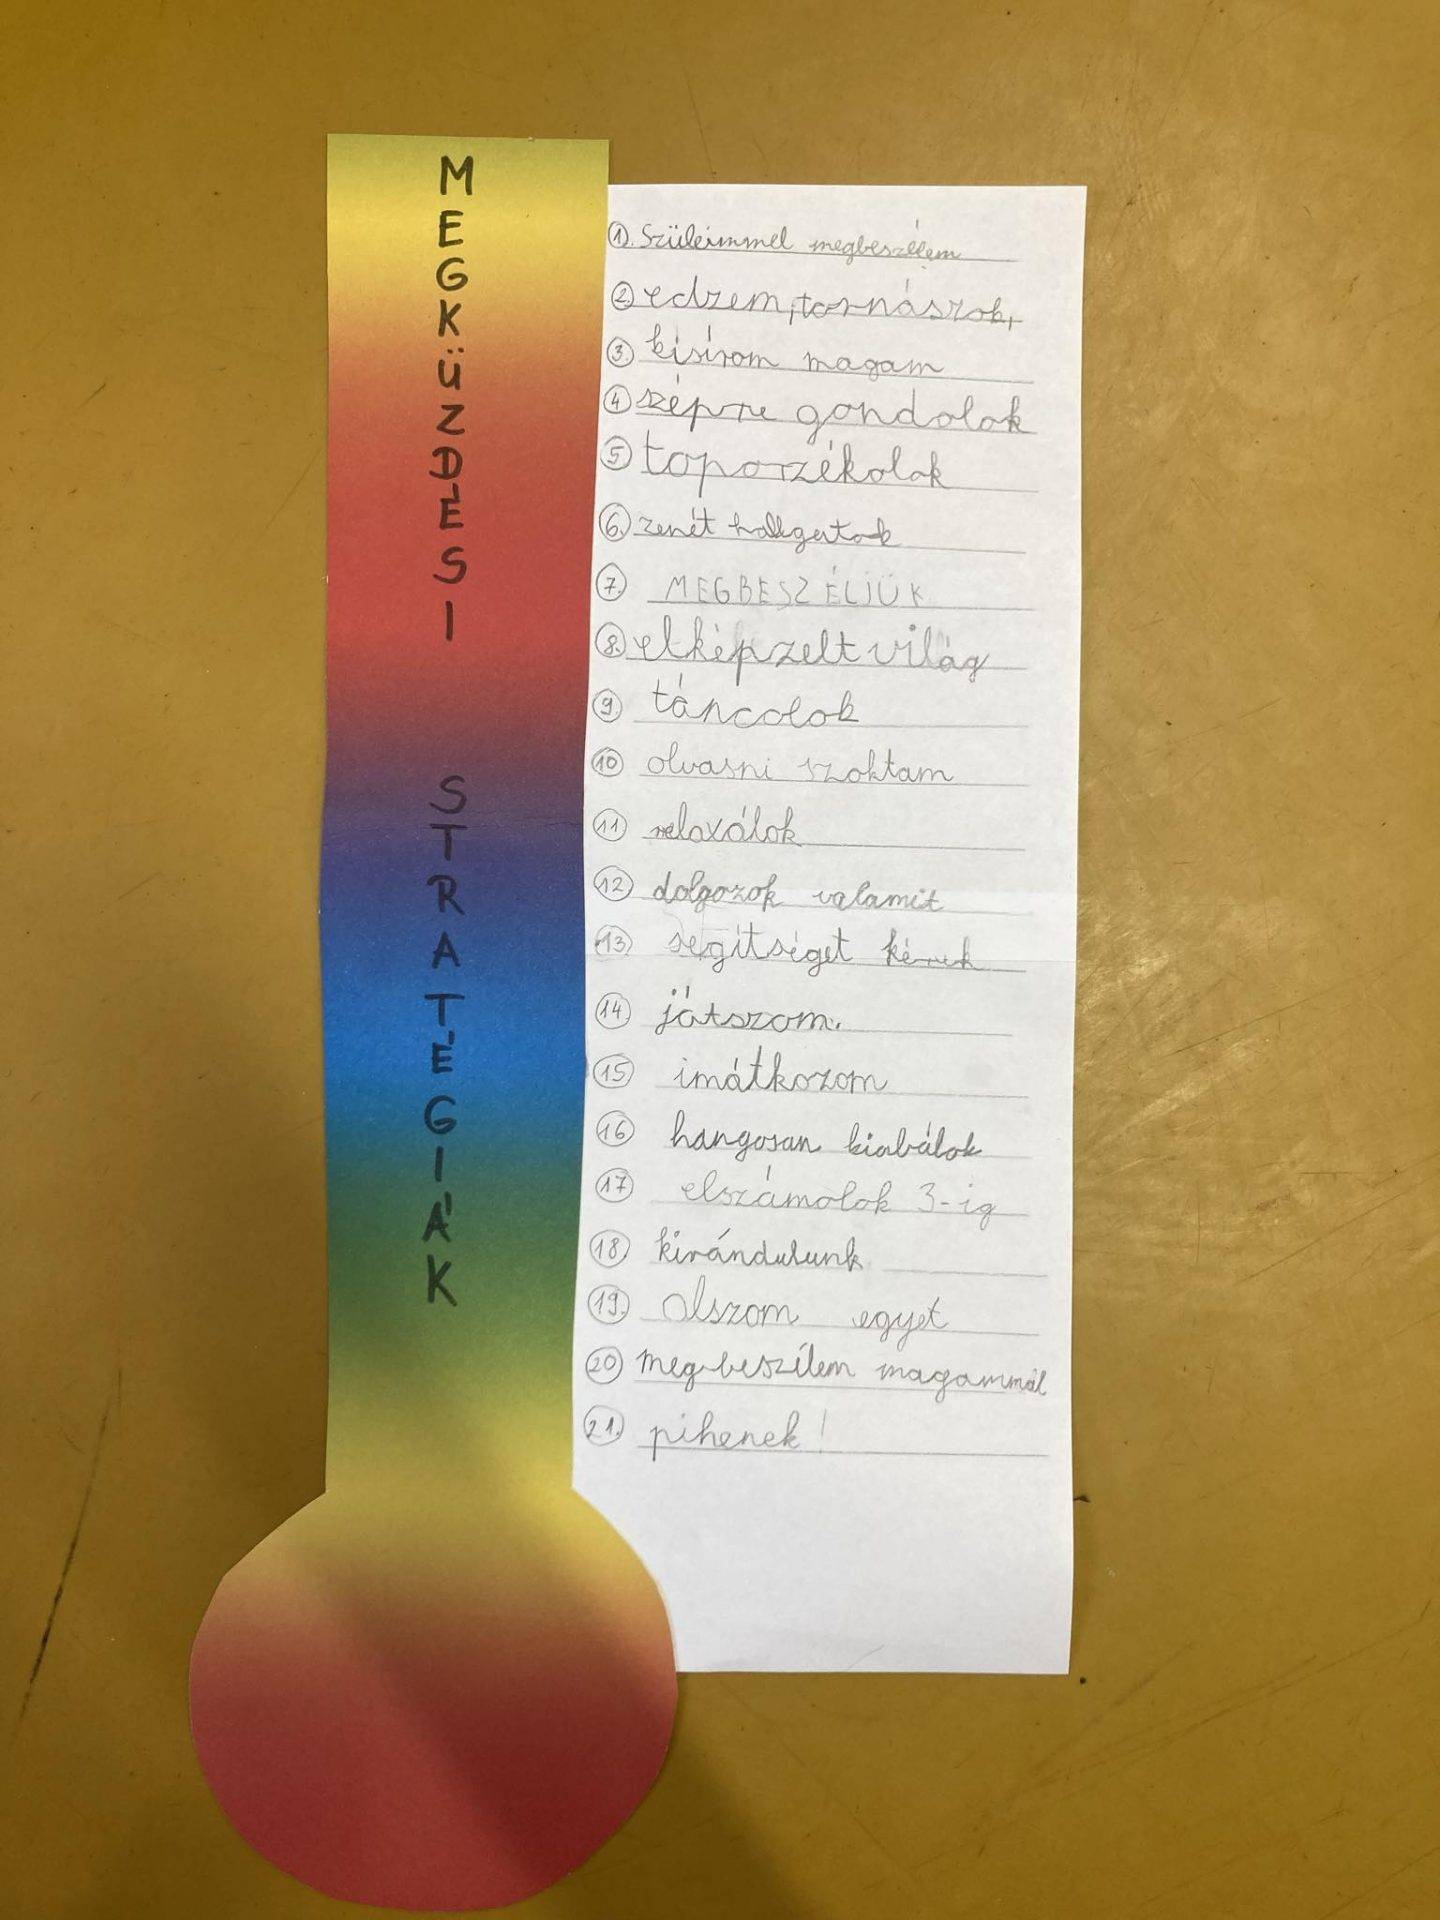 MEGKÜZDÉSI
STRATÉGIÁK
1. Szüleimmel megbeszélem
2. edzem, tornászok,
3. kisírom magam
4 szépre gondolok
5 toporzékolok
6. zenét hallgatok
7. MEGBESZÉLJÜK
8. elképzelt világ
9. táncolok
10 olvasni szoktam
11 relaxálok
12 dolgozok valamit
13 segítséget kérek
14 játszom.
15 imátkozom
16 hangosan kiabálok
17 elszámolok 3-ig
18. kirándulunk
19. alszom egyet
20 megbeszélem magammal
21. pihenek!